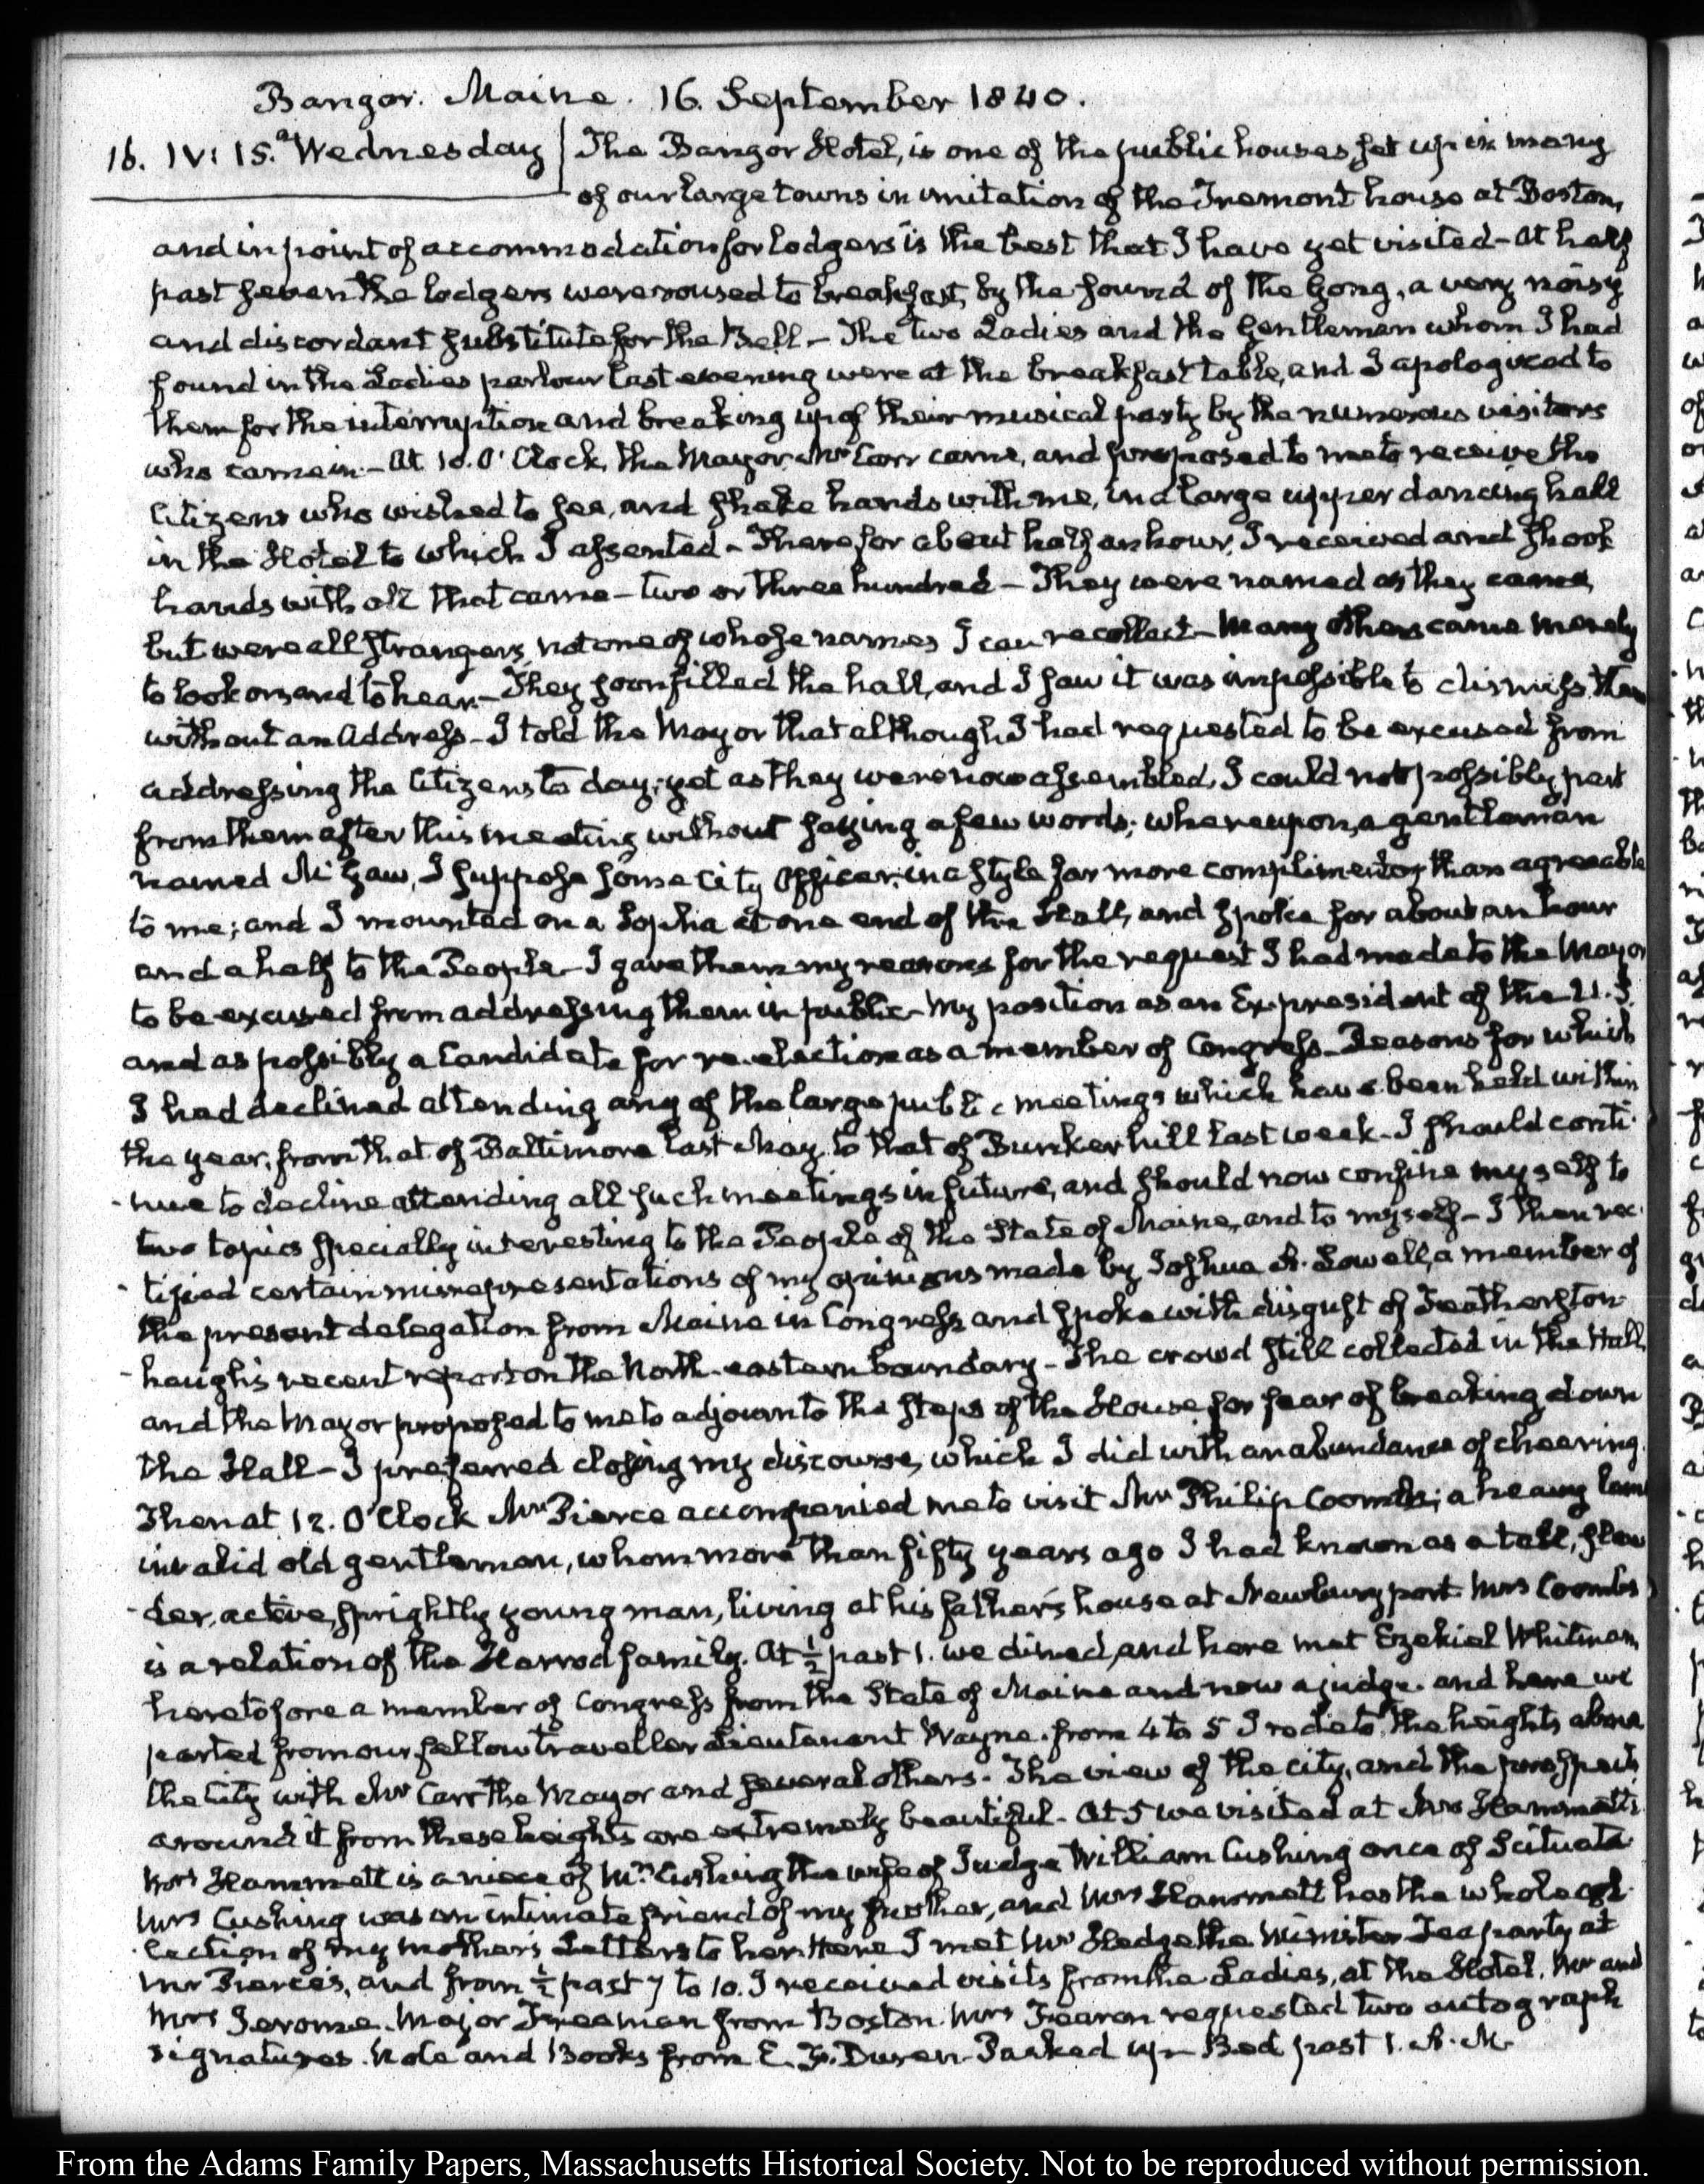 Bangor. Maine. 16. September 1840.
16. IV: 15.a Wednesday
The Bangor Hotel, is one of the public houses set up in many
of our large towns in imitation of the Tremont house at Boston,
and in point of accommodation for lodgers is the best that I have yet visited - At half
past seven the lodgers were roused to breakfast, by the sound of the Gong, a very noisy
and discordant substitute for the Bell - The two Ladies and the Gentleman whom I had
found in the Ladies parlour last evening were at the breakfast table, and I apologized to
them for the interruption and breaking up of their musical party by the numerous visitors
who came in - At 10. O'Clock, the Mayor Mr Carr came, and proposed to me to receive the
Citizens who wished to see, and shake hands with me, in a large upper dancing hall
in the Hotel to which I assented - There for about half an hour, I received and shook
hands with all that came - two or three hundred - They were named as they came,
but were all strangers, not one of whose names I can recollect - Many others came merely
to look on and to hear - They soon filled the hall, and I saw it was impossible to dismiss them
without an Address - I told the Mayor that although I had requested to be excused from
addressing the Citizens to day; yet as they were now assembled, I could not possibly part
from them after this meeting without saying a few words; whereupon, a gentleman
named McGaw, I suppose some City Officer, in a style far more complimentary than agreeable
to me; and I mounted on a Sopha at one end of the Hall, and spoke for about an hour
and a half to the People - I gave them my reasons for the request I had made to the Mayor
to be excused from addressing them in public - My position as an Ex-president of the U.S.
and as possibly a Candidate for re-election as a member of Congress - Reasons for which
I had declined attending any of the large public meetings which have been held within
the year, from that of Baltimore last May to that of Bunker hill last week - I should conti-
-nue to decline attending all such meetings in future, and should now confine myself to
two topics specially interesting to the People of the State of Maine, and to myself - I then rec-
-tified certain misrepresentations of my opinions made by Joshua A. Lowell, a member of
the present delegation from Maine in Congress and spoke with disgust of Featherston-
-haugh's recent report on the North-eastern boundary - The crowd still collected in the Hall,
and the Mayor proposed to me to adjourn to the steps of the House for fear of breaking down
the Hall - I preferred closing my discourse, which I did with an abundance of cheering.
Then at 12. O'Clock Mr Pierce accompanied me to visit Mr Philip Coombs; a heavy lame
invalid old gentleman, whom more than fifty years ago I had known as a tall, slen-
-der, active, sprightly young man, living at his father's house at Newbury port. Mrs Coombs
is a relation of the Harrod family. At ½ past 1. we dined, and here met Ezekiel Whitman,
heretofore a member of Congress from the State of Maine and now a judge. and here we
parted from our fellow traveller Lieutenant Wayne. from 4 to 5 I rode to the heights above
the City with Mr Carr the Mayor and several others. The view of the city, and the prospects
around it from these heights are extremely beautiful - At 5 we visited at Mrs Hammatt's
Mrs Hammatt is a niece of Mrs Cushing the wife of Judge William Cushing once of Scituate
Mrs Cushing was an intimate friend of my mother, and Mrs Hammatt has the whole col-
-lection of my mother's Letters to her. Here I met Mr Hedge the Minister Tea party at
Mr Pierce's, and from ½ past 7 to 10. I received visits from the Ladies, at the Hotel. Mr and
Mrs Jerome. Major Freeman from Boston. Mrs Fearon requested two autograph
signatures. Note and Books from E. F. Duren. Packed up - Bed past 1. A.M.
From the Adams Family Papers, Massachusetts Historical Society. Not to be reproduced without permission.